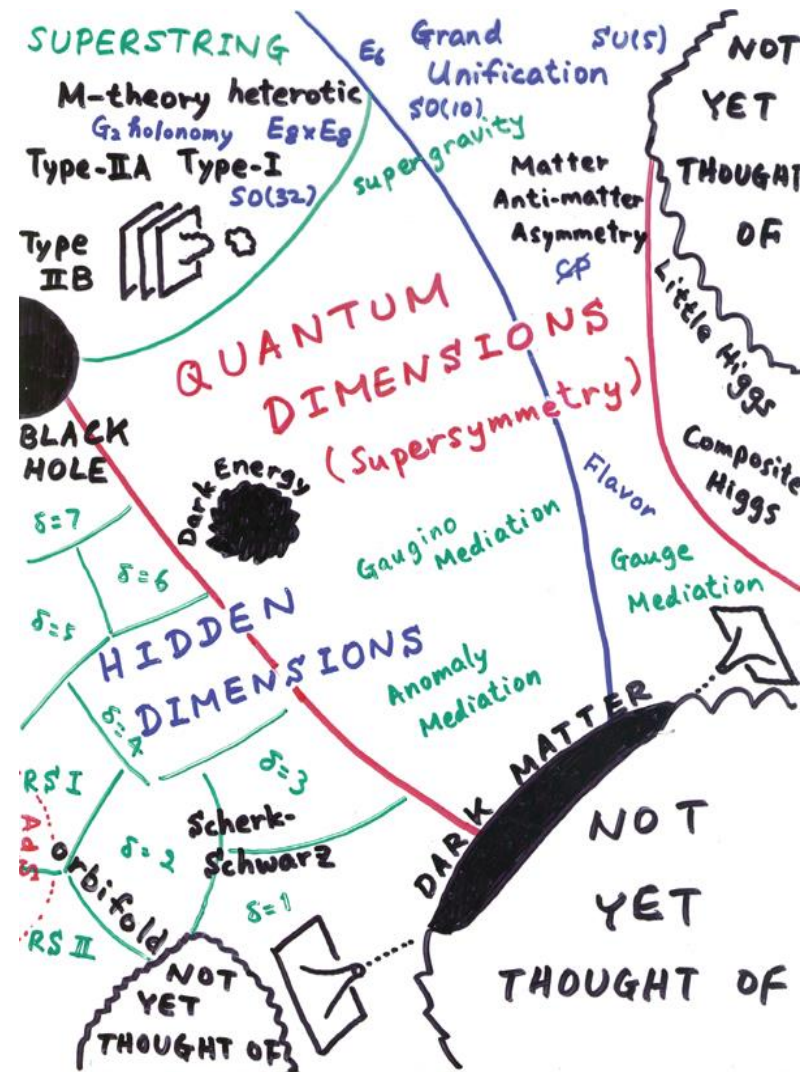 SUPERSTRING
M-theory heterotic
G₂ holonomy E₈×E₈
Type-IIA Type-I
SO(32)
Type
IIB
E₆
Grand
Unification
SU(5)
SO(10)
supergravity
Matter
Anti-matter
Asymmetry
CP
NOT
YET
THOUGHT
OF
Little Higgs
Composite
Higgs
QUANTUM
DIMENSIONS
(Supersymmetry)
BLACK
HOLE
Dark Energy
Flavor
Gaugino
Mediation
Gauge
Mediation
δ=7
δ=6
δ=5
HIDDEN
DIMENSIONS
Anomaly
Mediation
δ=4
δ=3
RS I
AdS
orbifold
δ=2
Scherk-
Schwarz
δ=1
RS II
DARK MATTER
NOT
YET
THOUGHT OF
NOT
YET
THOUGHT OF